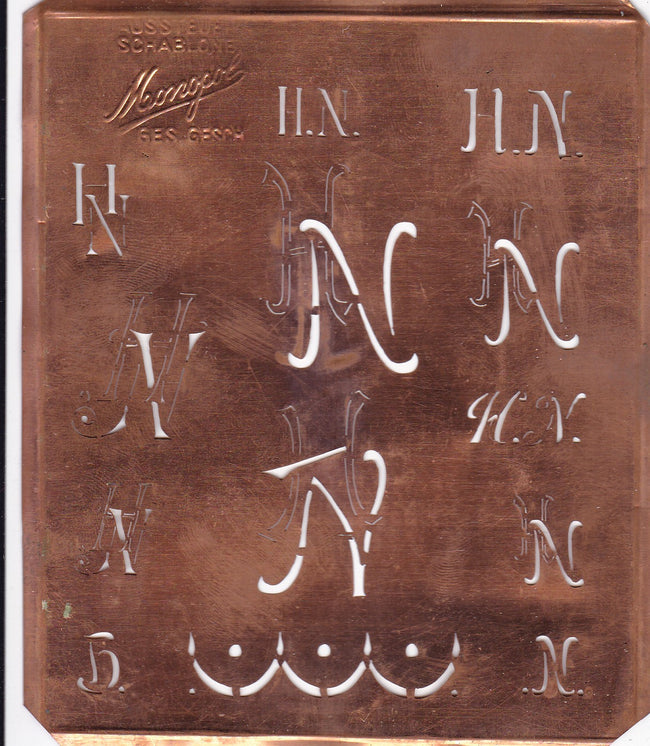 AUSSTEUER
SCHABLONE
Monopol
GES. GESCH
H.N. H.N.
HN
HN HN
HN
H.N.
HN
HN HN
H. N.